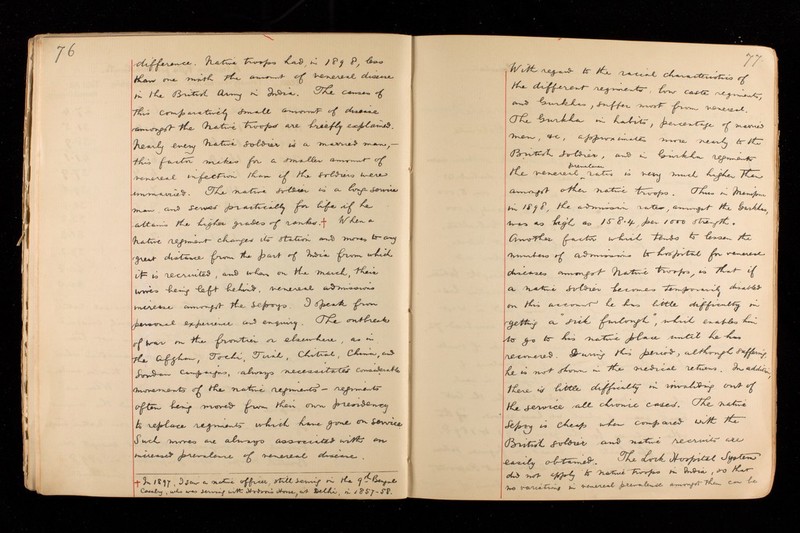 76
difference. Native troops had, in 1898, less
than one ninth the amount of venereal disease
in the British Army in India. The causes of
this comparatively small amount of disease
amongst the Native troops are briefly explained.
Nearly every Native soldier is a married man,—
this factor makes for a smaller amount of
venereal infection than if the soldiers were
unmarried. The native soldier is a long service
man and serves practically for life if he
attains the higher grades of ranks.† When a
Native regiment changes its station and moves to any
great distance from the part of India from which
it is recruited, and when on the march, their
wives being left behind, venereal admissions
increase amongst the sepoys. I speak from
personal experience and enquiry. The outbreak
of war on the frontier or elsewhere, as in
the Afghan, Tochi, Tirah, Chitral, China, and
Soudan campaigns, always necessitates considerable
movements of the native regiments – regiments
often being moved from their own presidency
to replace regiments which have gone on service
Such moves are always associated with an
increased prevalence of venereal disease.
† In 1897, I saw a native officer, still serving in the 9th Bengal
Cavalry, who was serving with Hodson's Horse, at Delhi, in 1857-58.
77
With regard to the racial characteristics of
the different regiments. Low caste regiments,
and Gurkhas, suffer most from venereal.
The Gurkha in habits, percentage of married
men, &c, approximates more nearly to the
British soldier, and in Gurkha regiments
the venereal prevalence rates is very much higher than
amongst other native troops. Thus in Manipur
in 1898, the admission rates, amongst the Gurkhas,
was as high as 158.4 per 1000 strength.
Another factor which tends to lessen the
numbers of admissions to hospital for venereal
diseases amongst Native troops, is that if
a native soldier becomes temporarily disabled
on this account he has little difficulty in
getting a "sick furlough", which enables him
to go to his native place until he has
recovered. During this period, although suffering,
he is not shown in the medical returns. In addition,
there is little difficulty in invaliding out of
the service all chronic cases. The native
Sepoy is cheap when compared with the
British soldier and native recruits are
easily obtained. The Lock Hospital System
did not apply to native troops in India, so that
no variations in venereal prevalence amongst them can be